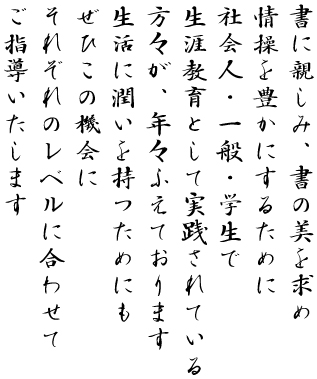 書に親しみ、書の美を求め
情操を豊かにするために
社会人・一般・学生で
生涯教育として実践されている
方々が、年々ふえております
生活に潤いを持つためにも
ぜひこの機会に
それぞれのレベルに合わせて
ご指導いたします